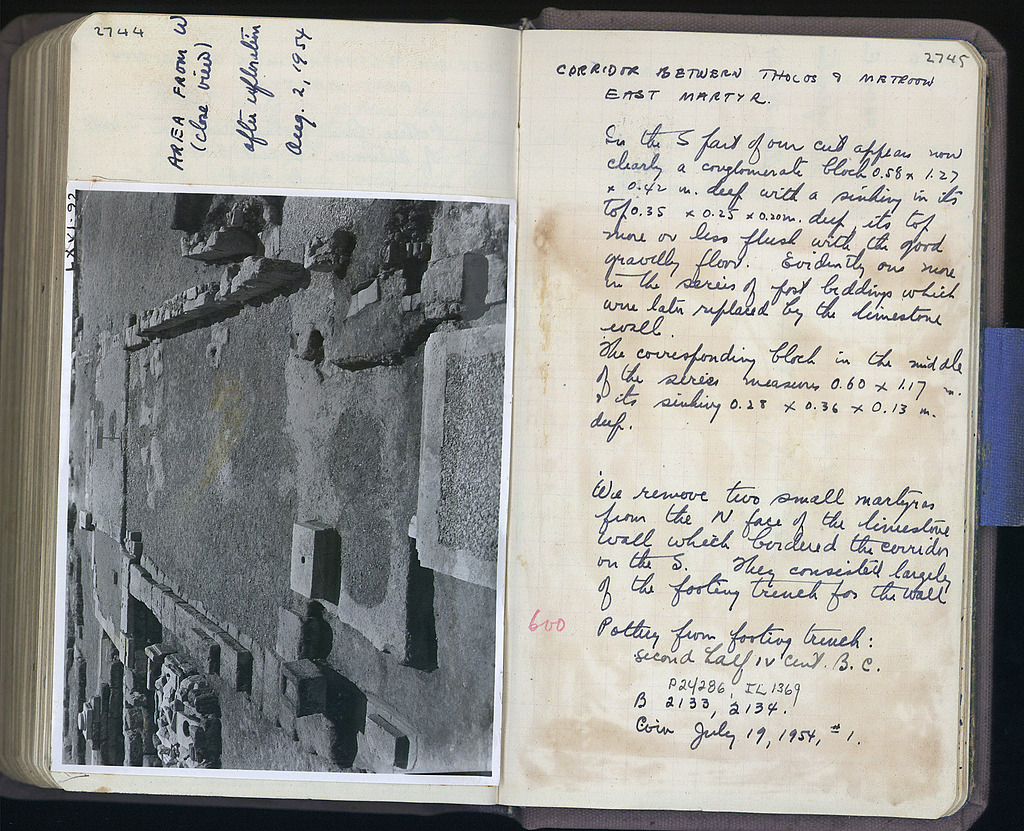 2744
AREA FROM W
(close view)
after exploration
Aug. 2, 1954
LXXVI-92
2745
CORRIDOR BETWEEN THOLOS & METROON
EAST MARTYR.
In the S part of our cut appears now
clearly a conglomerate block 0.58 x 1.27
x 0.42 m. deep with a sinking in its
top 0.35 x 0.25 x 0.20 m. deep, its top
more or less flush with the good
gravelly floor. Evidently one more
in the series of post beddings which
were later replaced by the limestone
wall.
The corresponding block in the middle
of the series measures 0.60 x 1.17 m.
& its sinking 0.28 x 0.36 x 0.13 m.
deep.
We remove two small martyras
from the N face of the limestone
wall which bordered the corridor
on the S. They consisted largely
of the footing trench for the wall
600
Pottery from footing trench:
second half IV cent. B.C.
P24286, IL 1369
B 2133, 2134.
Coin July 19, 1954, #1.